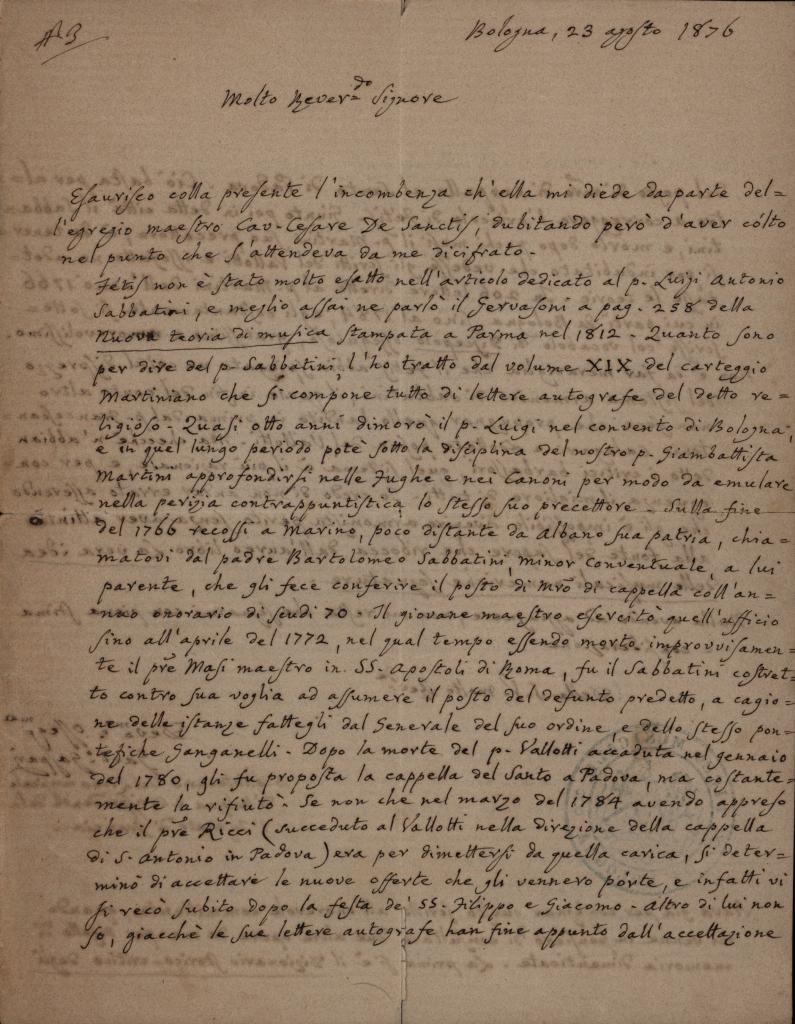 Bologna, 23 agosto 1876
Molto Rever.do Signore
Esaurisco colla presente l'incombenza ch'ella mi diede da parte del=
l'egregio maestro Cav. Cesare De Sanctis, dubitando però d'aver cólto
nel punto che s'attendeva da me dicifrato.
Fétis non è stato molto esatto nell'articolo dedicato al p. Luigi Antonio
Sabbatini, e meglio assai ne parlò il Gervasoni a pag. 258 della
Nuova teoria di musica stampata a Parma nel 1812. Quanto sono
per dire del p. Sabbatini, l'ho tratto dal volume XIX del carteggio
Martiniano che si compone tutto di lettere autografe del detto re=
ligioso. Quasi otto anni dimorò il p. Luigi nel convento di Bologna,
e in quel lungo periodo potè sotto la disciplina del nostro p. Giambattista
Martini approfondirsi nelle Fughe e nei Canoni per modo da emulare
nella perizia contrappuntistica lo stesso suo precettore. Sulla fine
del 1766 recossi a Marino, poco distante da Albano sua patria, chia=
matovi dal padre Bartolomeo Sabbatini, minor conventuale, a lui
parente, che gli fece conferire il posto di Mro di cappella coll'an=
nuo onorario di scudi 70. Il giovane maestro esercitò quell'ufficio
sino all'aprile del 1772, nel qual tempo essendo morto improvvisamen=
te il pre Masi maestro in SS. Apostoli di Roma, fu il Sabbatini costret=
to contro sua voglia ad assumere il posto del defunto predetto, a cagio=
ne delle istanze fattegli dal Generale del suo ordine, e dello stesso pon=
tefiche Ganganelli. Dopo la morte del p. Vallotti accaduta nel gennaio
del 1780, gli fu proposta la cappella del Santo a Padova, ma costante=
mente la rifiutò. Se non che nel marzo del 1784 avendo appreso
che il pre Ricci (succeduto al Vallotti nella direzione della cappella
di S. Antonio in Padova) era per dimettersi da quella carica, si deter=
minò di accettare le nuove offerte che gli vennero pórte, e infatti vi
si recò subito dopo la festa de' SS. Filippo e Giacomo. Altro di lui non
so, giacchè le sue lettere autografe han fine appunto dall'accettazione